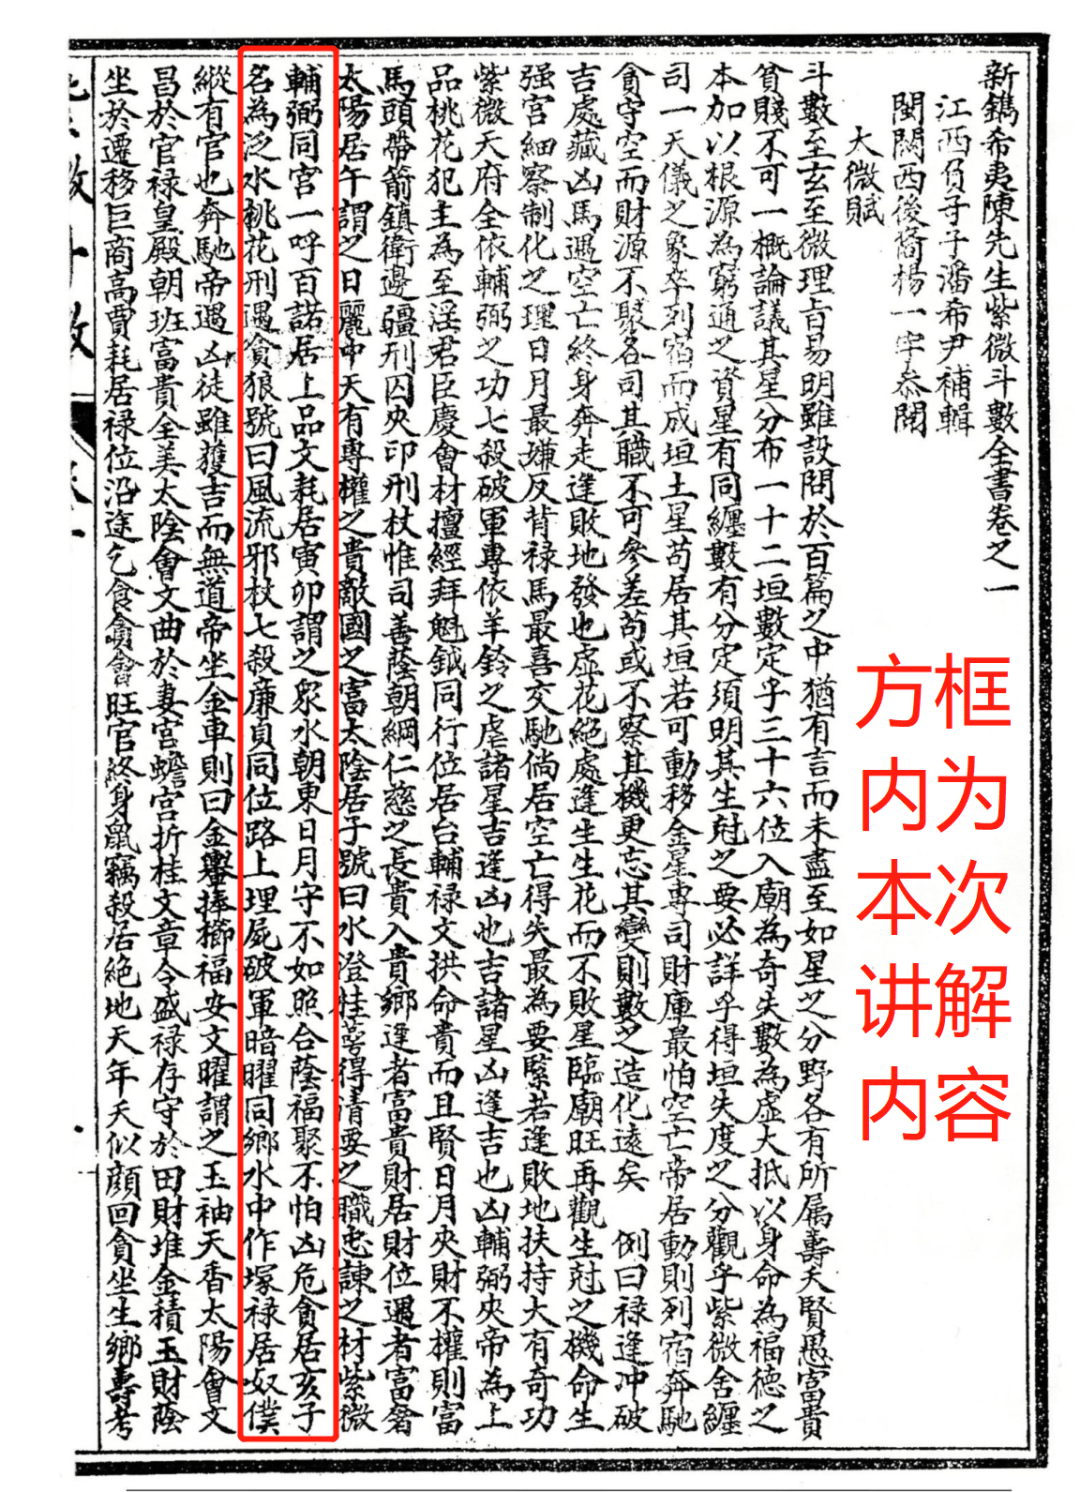 新鐫希夷陳先生紫微斗數全書卷之一
江西負子子潘希尹補輯
閩關西後裔楊一宇叅閱
太微賦
斗數至玄至微理旨易明雖設問於百篇之中猶有言而未盡至如星之分野各有所属壽夭賢愚富貴
貧賤不可一概論議其星分布一十二垣數定乎三十六位入廟為奇失數為虛大抵以身命為福德之
本加以根源為窮通之資星有同纏數有分定須明其生尅之要必詳乎得垣失度之分觀乎紫微舍纏
司一天儀之象卒列宿而成垣土星苟居其垣若可動移金星專司財庫最怕空亡帝居動則列宿奔馳
貪守空而財源不聚各司其職不可參差苟或不察其機更忘其變則數之造化遠矣　例曰禄逢冲破
吉處藏凶馬遇空亡終身奔走逢敗地發也虛花絕處逢生生花而不敗星臨廟旺再觀生尅之機命生
强宮細察制化之理日月最嫌反背禄馬最喜交馳倘居空亡得失最為要緊若逢敗地扶持大有奇功
紫微天府全依輔弼之功七殺破軍專依羊鈴之虐諸星吉逢凶也吉諸星凶逢吉也凶輔弼夾帝為上
品桃花犯主為至淫君臣慶會材擅經拜魁鉞同行位居台輔禄文拱命貴而且賢日月夾財不權則富
馬頭帶箭鎮衛邊疆刑囚夾印刑杖惟司善蔭朝綱仁慈之長貴入貴鄉逢者富貴財居財位遇者富奢
太陽居午謂之日麗中天有專權之貴敵國之富太陰居子號曰水澄桂萼得清要之職忠諫之材紫微
輔弼同宮一呼百諾居上品文耗居寅卯謂之衆水朝東日月守不如照合蔭福聚不怕凶危貪居亥子
名為泛水桃花刑遇貪狼號曰風流邪杖七殺廉貞同位路上埋屍破軍暗曜同鄉水中作塚禄居奴僕
縱有官也奔馳帝遇凶徒雖獲吉而無道帝坐金車則曰金轝捧櫛福安文曜謂之玉袖天香太陽會文
昌於官禄皇殿朝班富貴全美太陰會文曲於妻宮蟾宮折桂文章令盛禄存守於田財堆金積玉財蔭
坐於遷移巨商高賈耗居禄位沿途乞食貪會旺宮終身鼠竊殺居絕地天年夭似顔回貪坐生鄉壽考
方框
内为
本次
讲解
内容